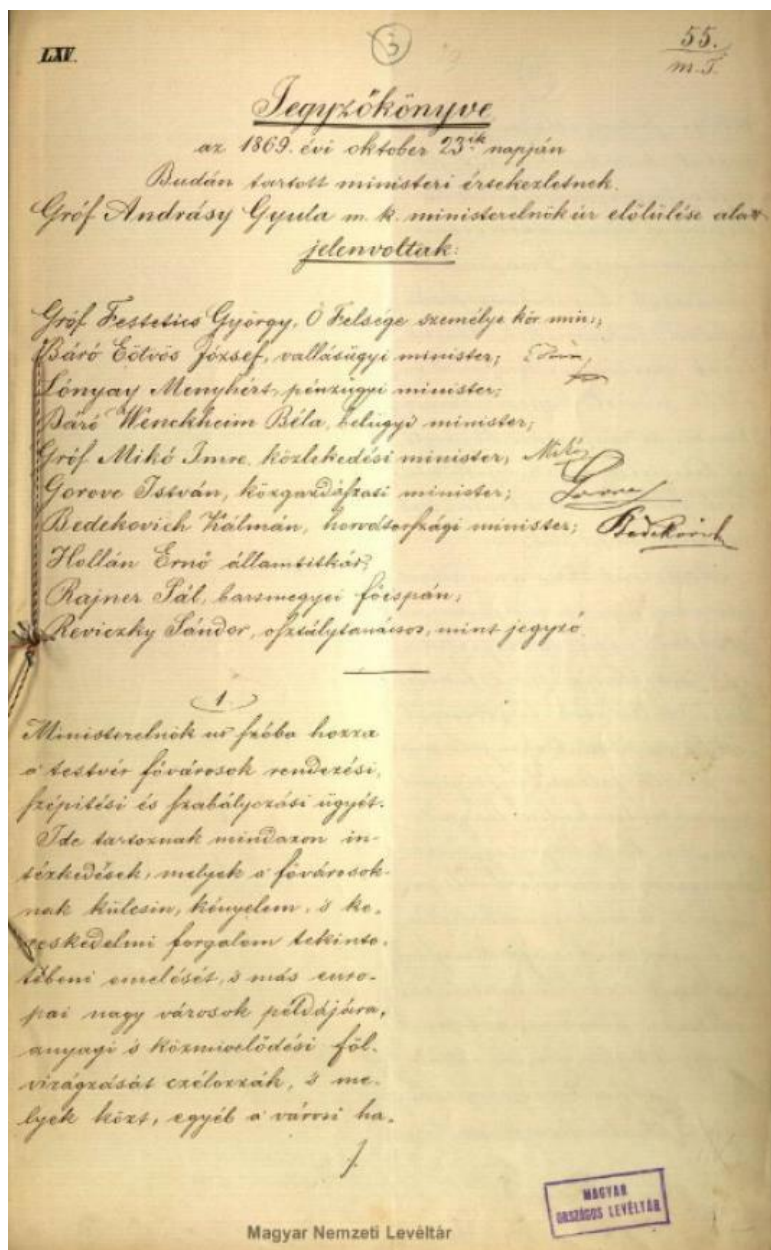 LXV.
3
55.
m.T.
Jegyzőkönyve
az 1869. évi oktober 23ik napján
Budán tartott ministeri értekezletnek.
Gróf Andrásy Gyula m. k. ministerelnök úr előlülése alatt
jelenvoltak:
Gróf Festetics György, Ő Felsége személye kör. min.;
Báró Eötvös József, vallásügyi minister; Eötvös
Lónyay Menyhért, pénzügyi minister;
Báró Wenckheim Béla, belügyi minister;
Gróf Mikó Imre, közlekedési minister; Mikó
Gorove István, közgazdászati minister; Gorove
Bedekovich Kálmán, horvátországi minister; Bedekovich
Hollán Ernő államtitkár;
Rajner Pál, barsmegyei főispán;
Reviczky Sándor, osztálytanácsos, mint jegyző.
1.
Ministerelnök úr szóba hozza
a testvér fővárosok rendezési,
szépitési és szabályozási ügyét.
Ide tartoznak mindazon in-
tézkedések, melyek a fővárosok-
nak külcsin, kényelem, s ke-
reskedelmi forgalom tekinte-
tébeni emelését, s más euro-
pai nagy városok példájára,
anyagi s közmivelődési föl-
virágzását czélozzák, s me-
lyek közt, egyéb a városi ha-
./.
MAGYAR
ORSZÁGOS LEVÉLTÁR
Magyar Nemzeti Levéltár